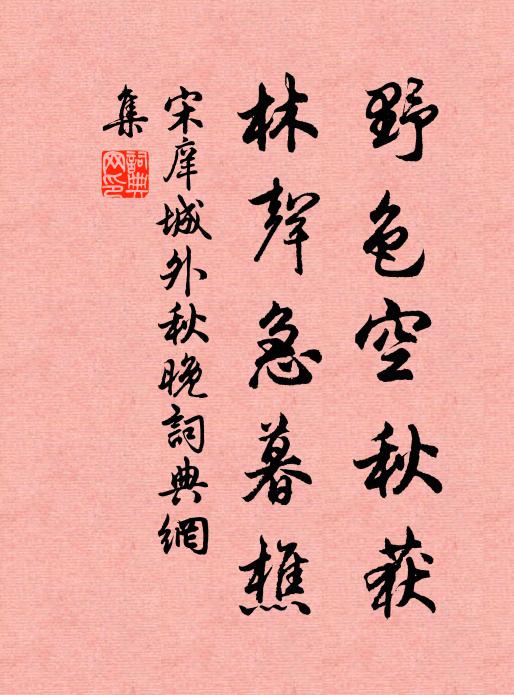 野色空秋获
林聲急暮樵
宋庠城外秋晚詞典網
集
詞典
网印